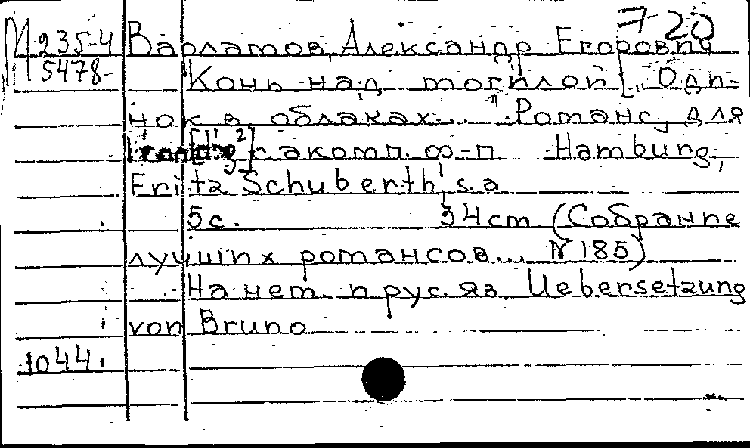 7-20
М 235-4 Варламов, Александр Егорович
5478- Конь над могилой ["Оди-
нок в облаках..." Романс, для
с акомп. ф-п Hamburg,
Fritz Schuberth, s.a
5с. 34cm (Собрание
лучших романсов... N 185)
На нем. и рус. яз Uebersetzung
von Bruno
1044.